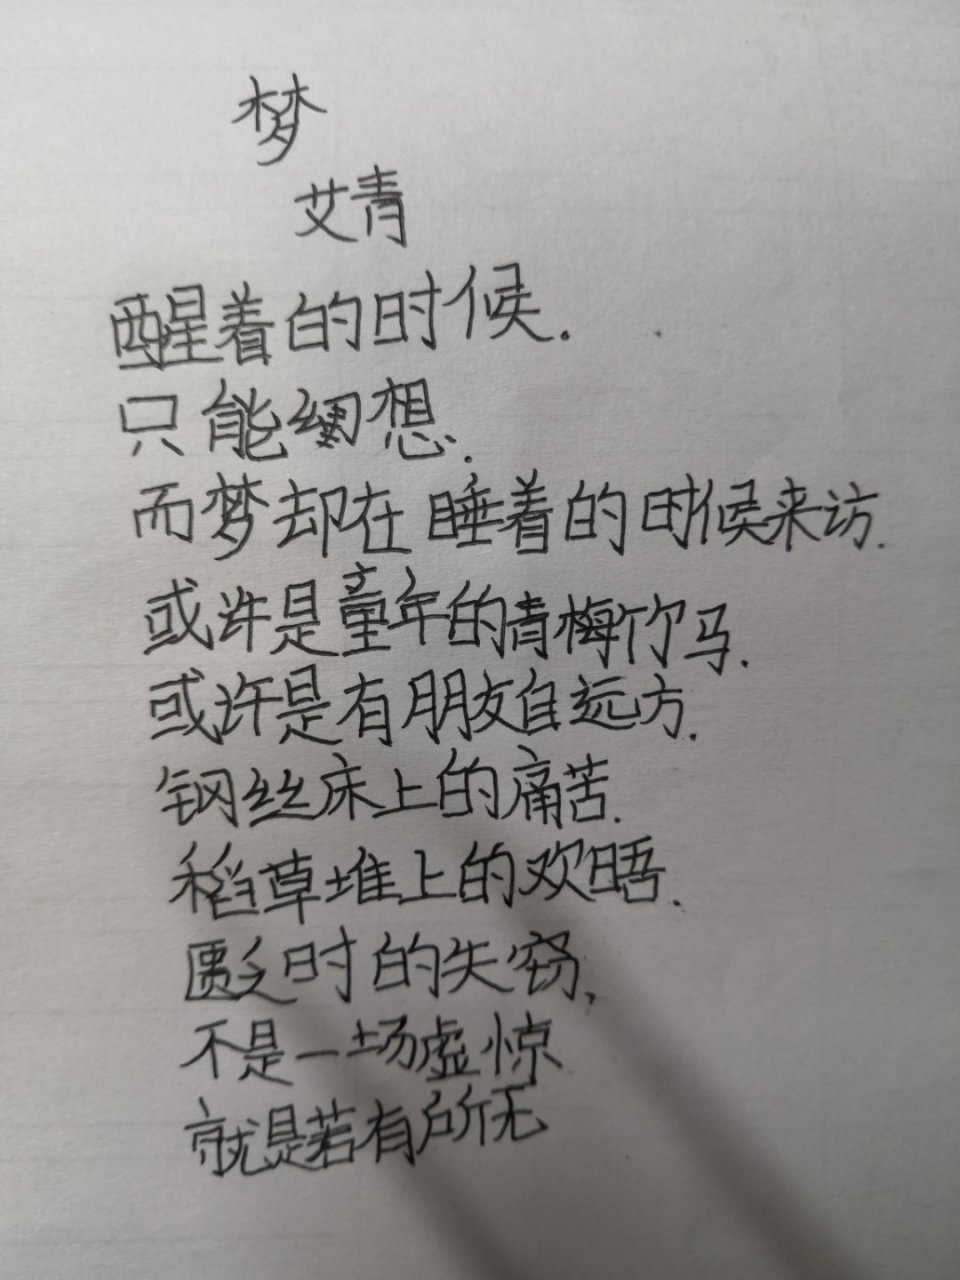 梦
艾青
醒着的时候.
只能想.
而梦却在睡着的时候来访.
或许是童年的青梅竹马.
或许是有朋友自远方.
钢丝床上的痛苦.
稻草堆上的欢晤.
匮乏时的失窃,
不是一场虚惊
就是若有所无